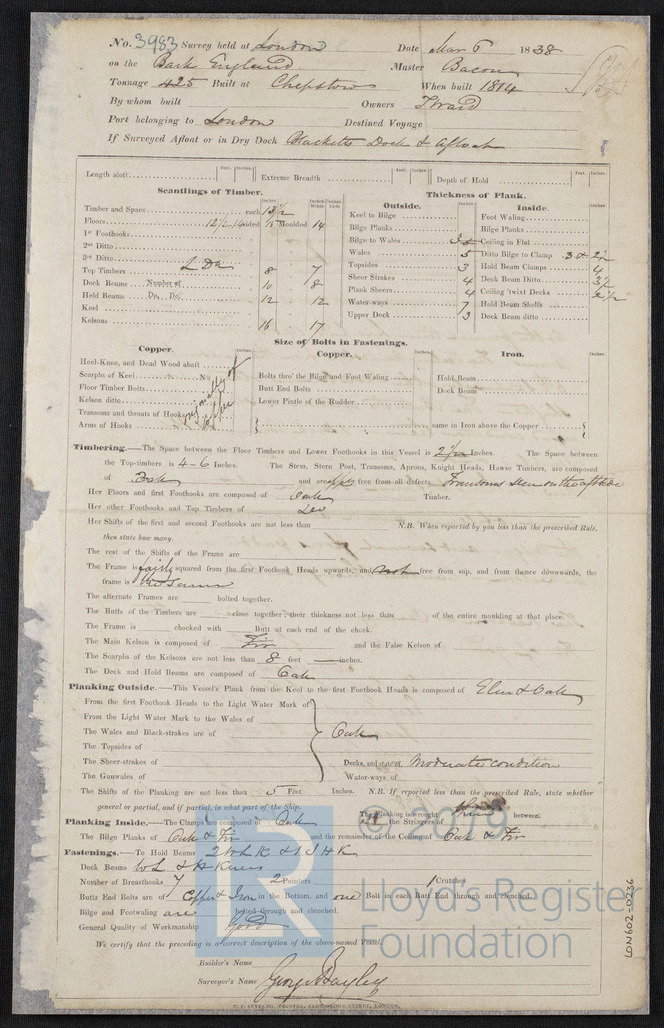 No. 3983 Survey held at London Date Mar 6 1838
on the Bark England Master Bacon
Tonnage 425 Built at Chepstow When built 1814
By whom built Owners T Ward
Port belonging to London Destined Voyage
If Surveyed Afloat or in Dry Dock Blacketts Dock & afloat
Length aloft Feet. Inches. Extreme Breadth Feet. Inches. Depth of Hold Feet. Inches.
Scantlings of Timber.
Timber and Space each 13½
Floors sided 15 Moulded 14
1st Foothooks
2nd Ditto
3rd Ditto
Top Timbers 8 7
Deck Beams Number of 10 8
Hold Beams Do. Do. 12 12
Keel
Kelsons 16 17
Thickness of Plank.
Outside.
Keel to Bilge
Bilge Planks
Bilge to Wales
Wales 5
Topsides 3
Sheer Strakes 4
Plank Sheers 4
Water-ways 7
Upper Deck 3
Inside.
Foot Waling
Bilge Planks
Ceiling in Flat
Ditto Bilge to Clamp 3 & 2½
Hold Beam Clamps 4
Deck Beam Ditto 3½
Ceiling 'twixt Decks 2½
Hold Beam Shelfs
Deck Beam ditto
Size of Bolts in Fastenings.
Copper.
Heel-Knee, and Dead Wood abaft
Scarphs of Keel No
Floor Timber Bolts
Kelson ditto
Transoms and throats of Hooks
Arms of Hooks
originally of Copper
Copper.
Bolts thro' the Bilge and Foot Waling
Butt End Bolts
Lower Pintle of the Rudder
Iron.
Hold Beam
Deck Beam
same in Iron above the Copper
Timbering.—The Space between the Floor Timbers and Lower Foothooks in this Vessel is 2½ Inches. The Space between
the Top-timbers is 4-6 Inches. The Stem, Stern Post, Transoms, Aprons, Knight Heads, Hawse Timbers, are composed
of Oak and are free from all defects.
Her Floors and first Foothooks are composed of Oak Timber.
Her other Foothooks and Top Timbers of Do
Her Shifts of the first and second Foothooks are not less than N.B. When reported by you less than the prescribed Rule,
then state how many.
The rest of the Shifts of the Frame are
The Frame is fairly squared from the first Foothook Heads upwards, and not free from sap, and from thence downwards, the
frame is the same
The alternate Frames are bolted together.
The Butts of the Timbers are close together, their thickness not less than of the entire moulding at that place.
The Frame is chocked with Butt at each end of the chock.
The Main Kelson is composed of Fir and the False Kelson of
The Scarphs of the Kelsons are not less than 8 feet inches.
The Deck and Hold Beams are composed of Oak
Planking Outside.—This Vessel's Plank from the Keel to the first Foothook Heads is composed of Elm & Oak
From the first Foothook Heads to the Light Water Mark of
From the Light Water Mark to the Wales of
The Wales and Black-strakes are of Oak
The Topsides of
The Sheer-strakes of Decks, and state of Moderate condition
The Gunwales of Water-ways of
The Shifts of the Planking are not less than 5 Feet Inches. N.B. If reported less than the prescribed Rule, state whether
general or partial, and if partial, in what part of the Ship.
The Planking is wrought between.
Planking Inside.—The Clamps are composed of Oak the Stringers of
The Bilge Planks of Oak & Fir and the remainder of the Ceiling of Oak & Fir
Fastenings.—To Hold Beams
Deck Beams
Number of Breasthooks 7 2 Pointers 1 Crutches
Butts End Bolts are of Copper & Iron in the Bottom, and one Bolt in each Butt End through and clenched.
Bilge and Footwaling are bolted through and clenched.
General Quality of Workmanship Good
We certify that the preceding is a correct description of the above-named Vessel.
Builder's Name
Surveyor's Name George Bayley
© 2019
Lloyd's Register
Foundation
LON602-0236